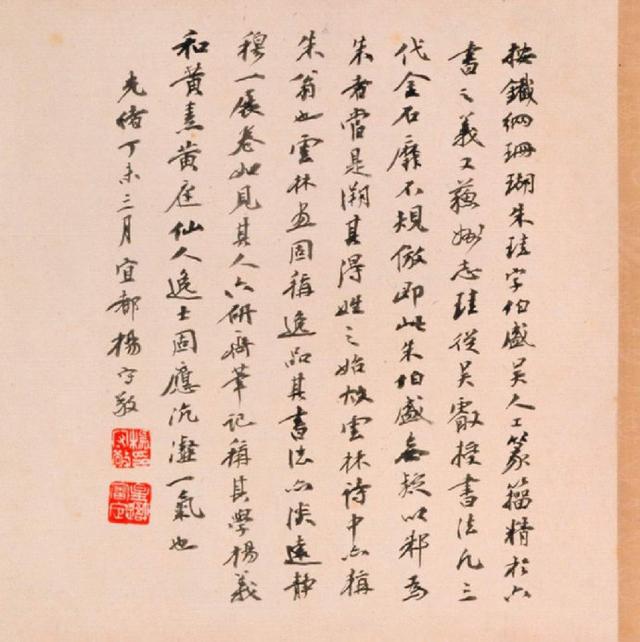 按鐵網珊瑚朱珪字伯盛吳人工篆籀精於六
書之義又蘇州志珪從吳叡授書法凡三
代金石靡不規倣即此朱伯盛無疑以邾為
朱者當是溯其得姓之始故雲林詩中亦稱
朱翁也雲林畫固稱逸品其書法亦淡遠靜
穆一展卷如見其人六研齋筆記稱其學楊羲
和黃素黃庭仙人逸士固應沉瀣一氣也
光緒丁未三月宜都楊守敬